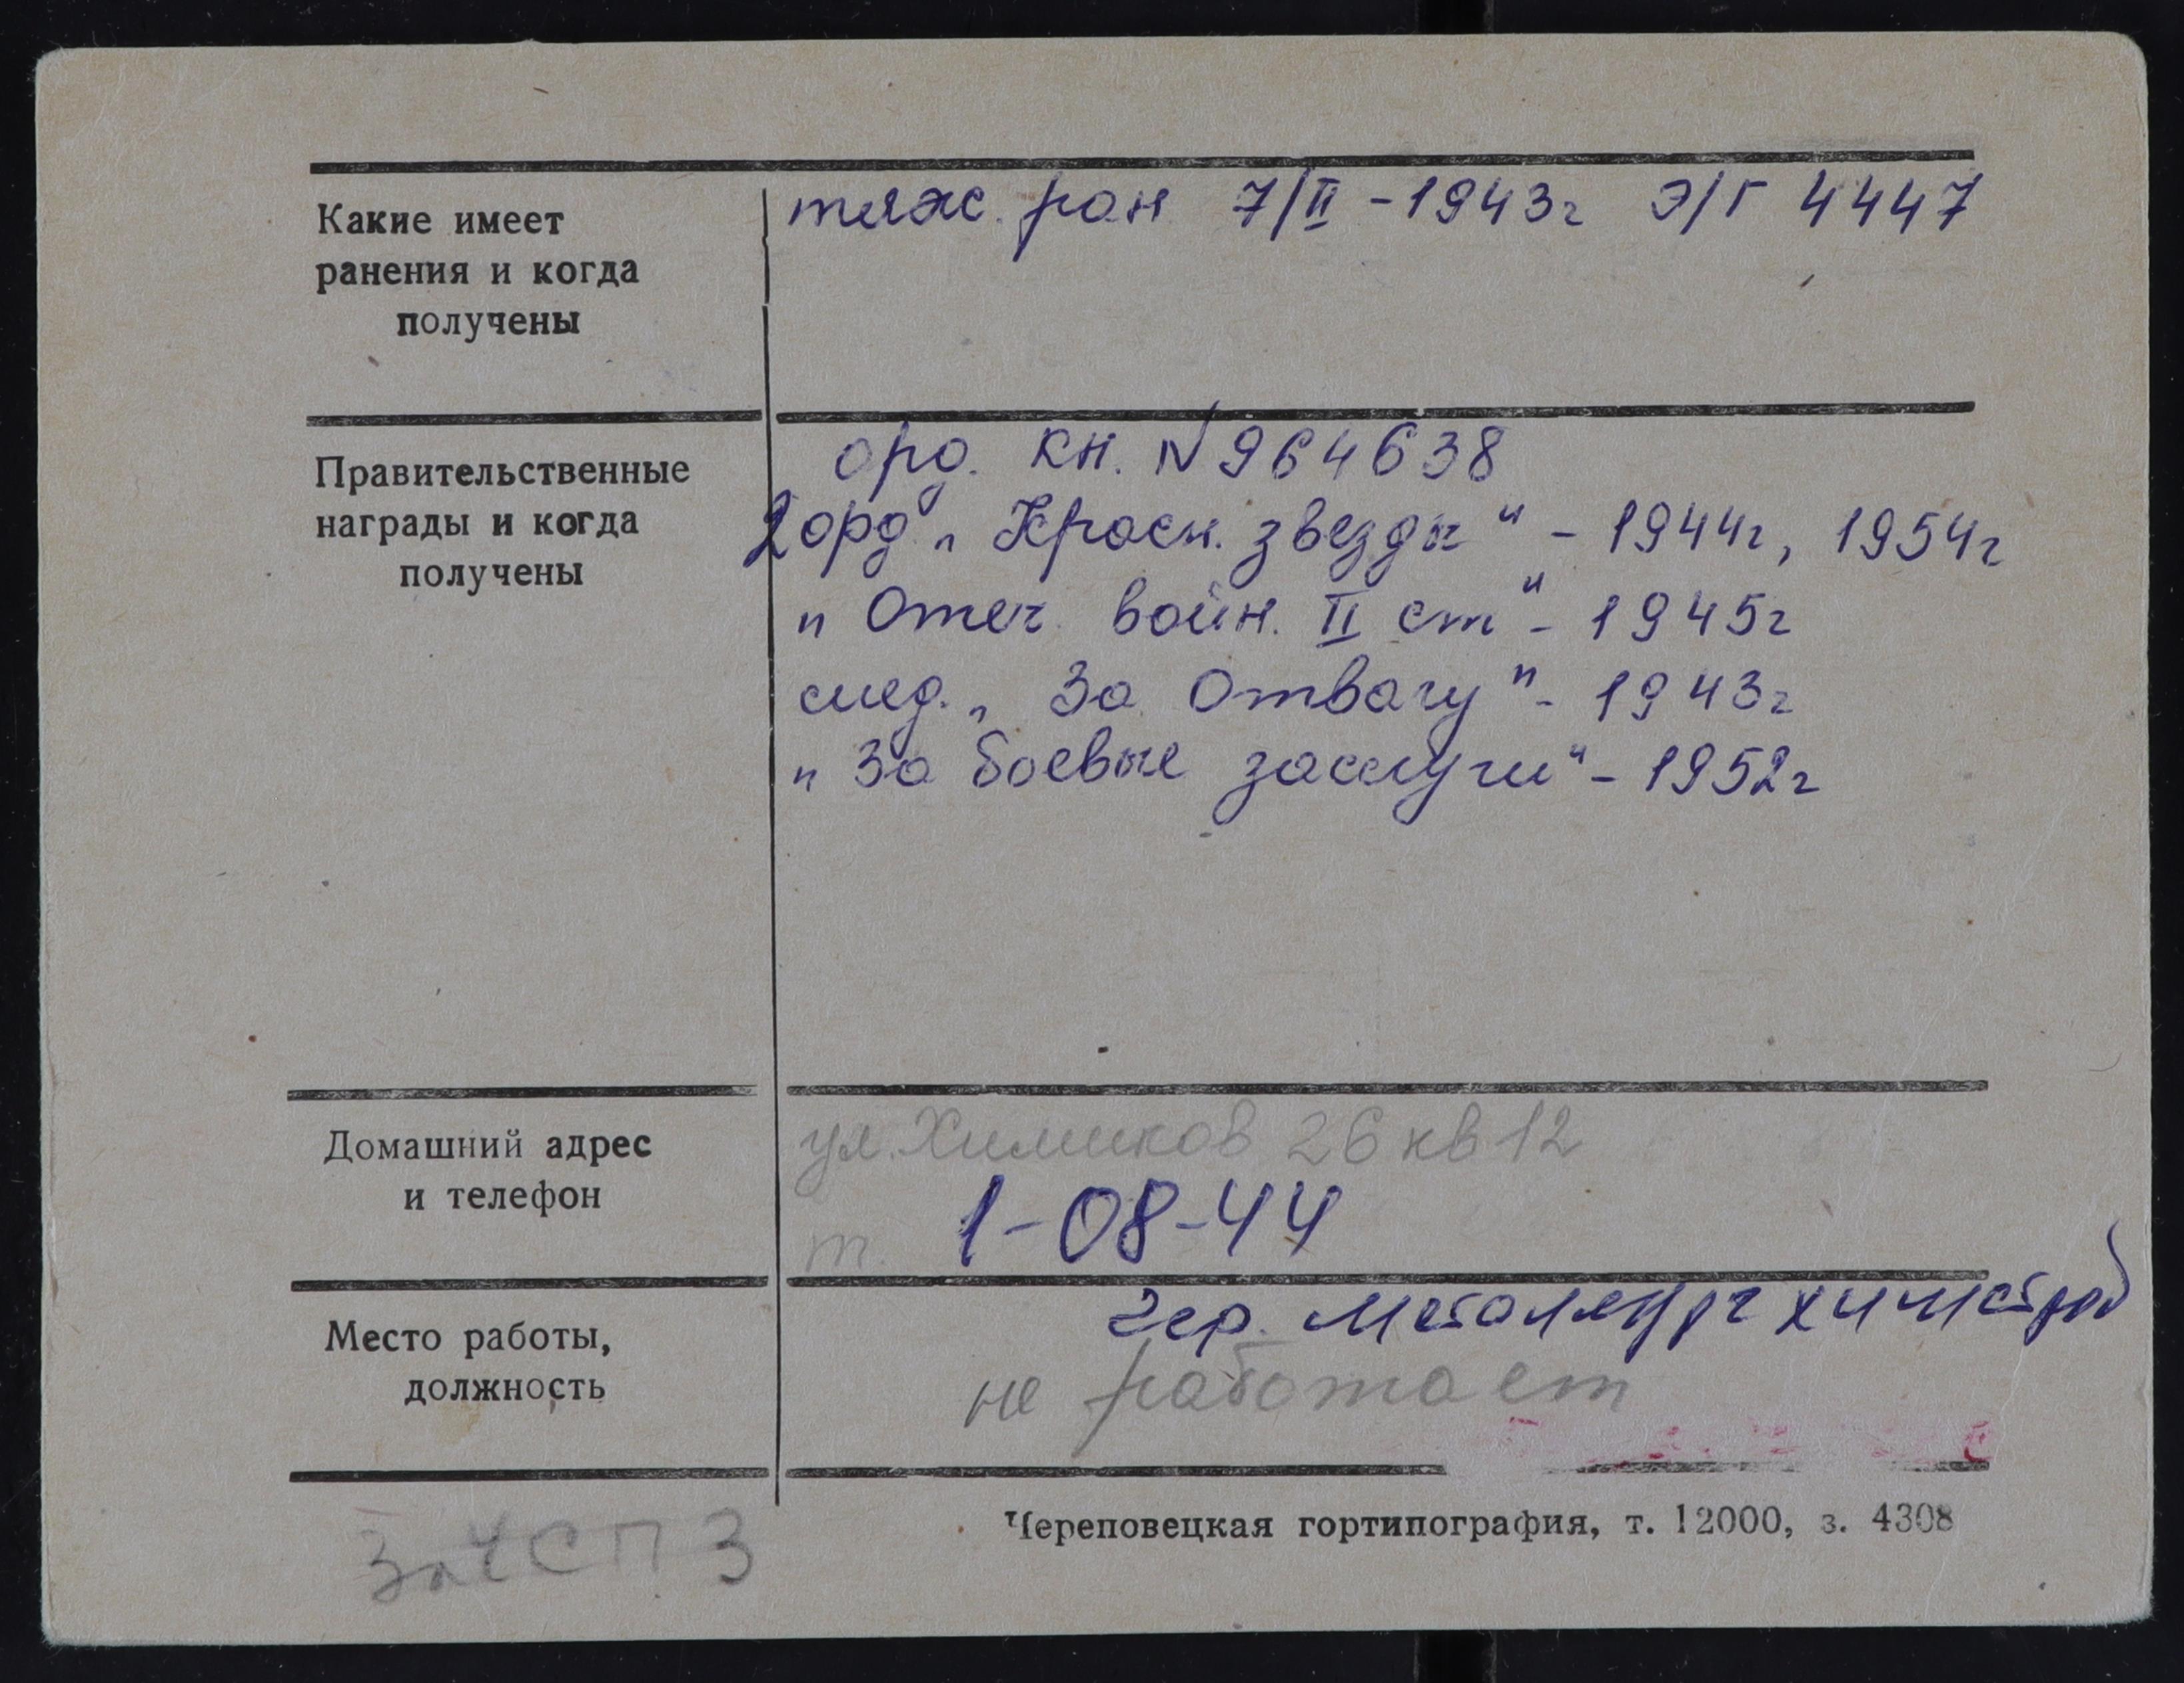 Какие имеет
ранения и когда
получены
тяж. ран 7/II - 1943г Э/Г 4447
Правительственные
награды и когда
получены
орд. кн. N 964638
2 орд. „Красн. звезды“ - 1944г, 1954г
„Отеч. войн. II ст“ - 1945г
мед. „За Отвагу“ - 1943г
„За боевые заслуги“ - 1952г
Домашний адрес
и телефон
ул. Химиков 26 кв 12
т. 1-08-44
Место работы,
должность
чер. металлургхимстрой
не работает
ЧСП 3
Череповецкая гортипография, т. 12000, з. 4308